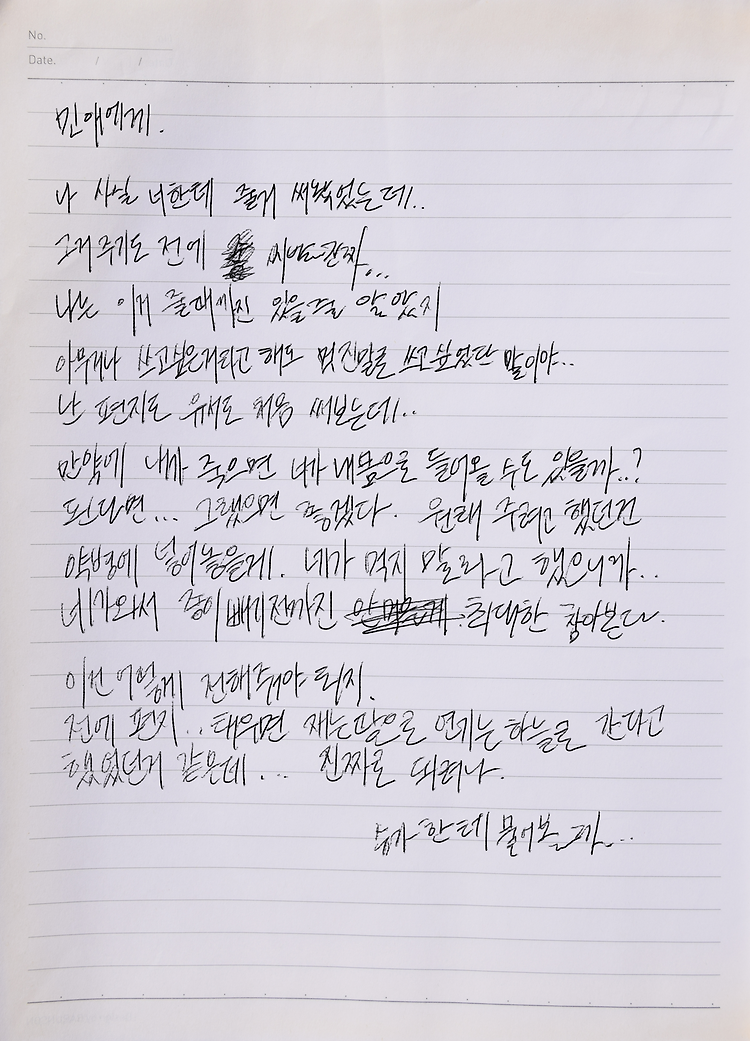 No.
Date. / /
민애에게.
나 사실 너한테 줄게 써왔었는데..
그거 주기도 전에
나는 이게 줄때까진 있을줄 알았지
아무거나 쓰고싶은거라고 해도 멋진말로 쓰고싶었단 말이야..
난 편지도 유서도 처음 써보는데..
만약에 내가 죽으면 너가 내몸으로 들어올 수도 있을까..?
된다면... 그랬으면 좋겠다. 원래 주려고 했던건
약병에 넣어놓을게. 네가 먹지 말라고 했으니까..
네가와서 종이빼기전까진 최대한 참아본다.
이건 어떻게 전해줘야 되지.
전에 편지.. 태우면 재는땅으로 연기는하늘로 간다고
했었던거 같은데... 진짜로 되려나.
한테 물어볼까...